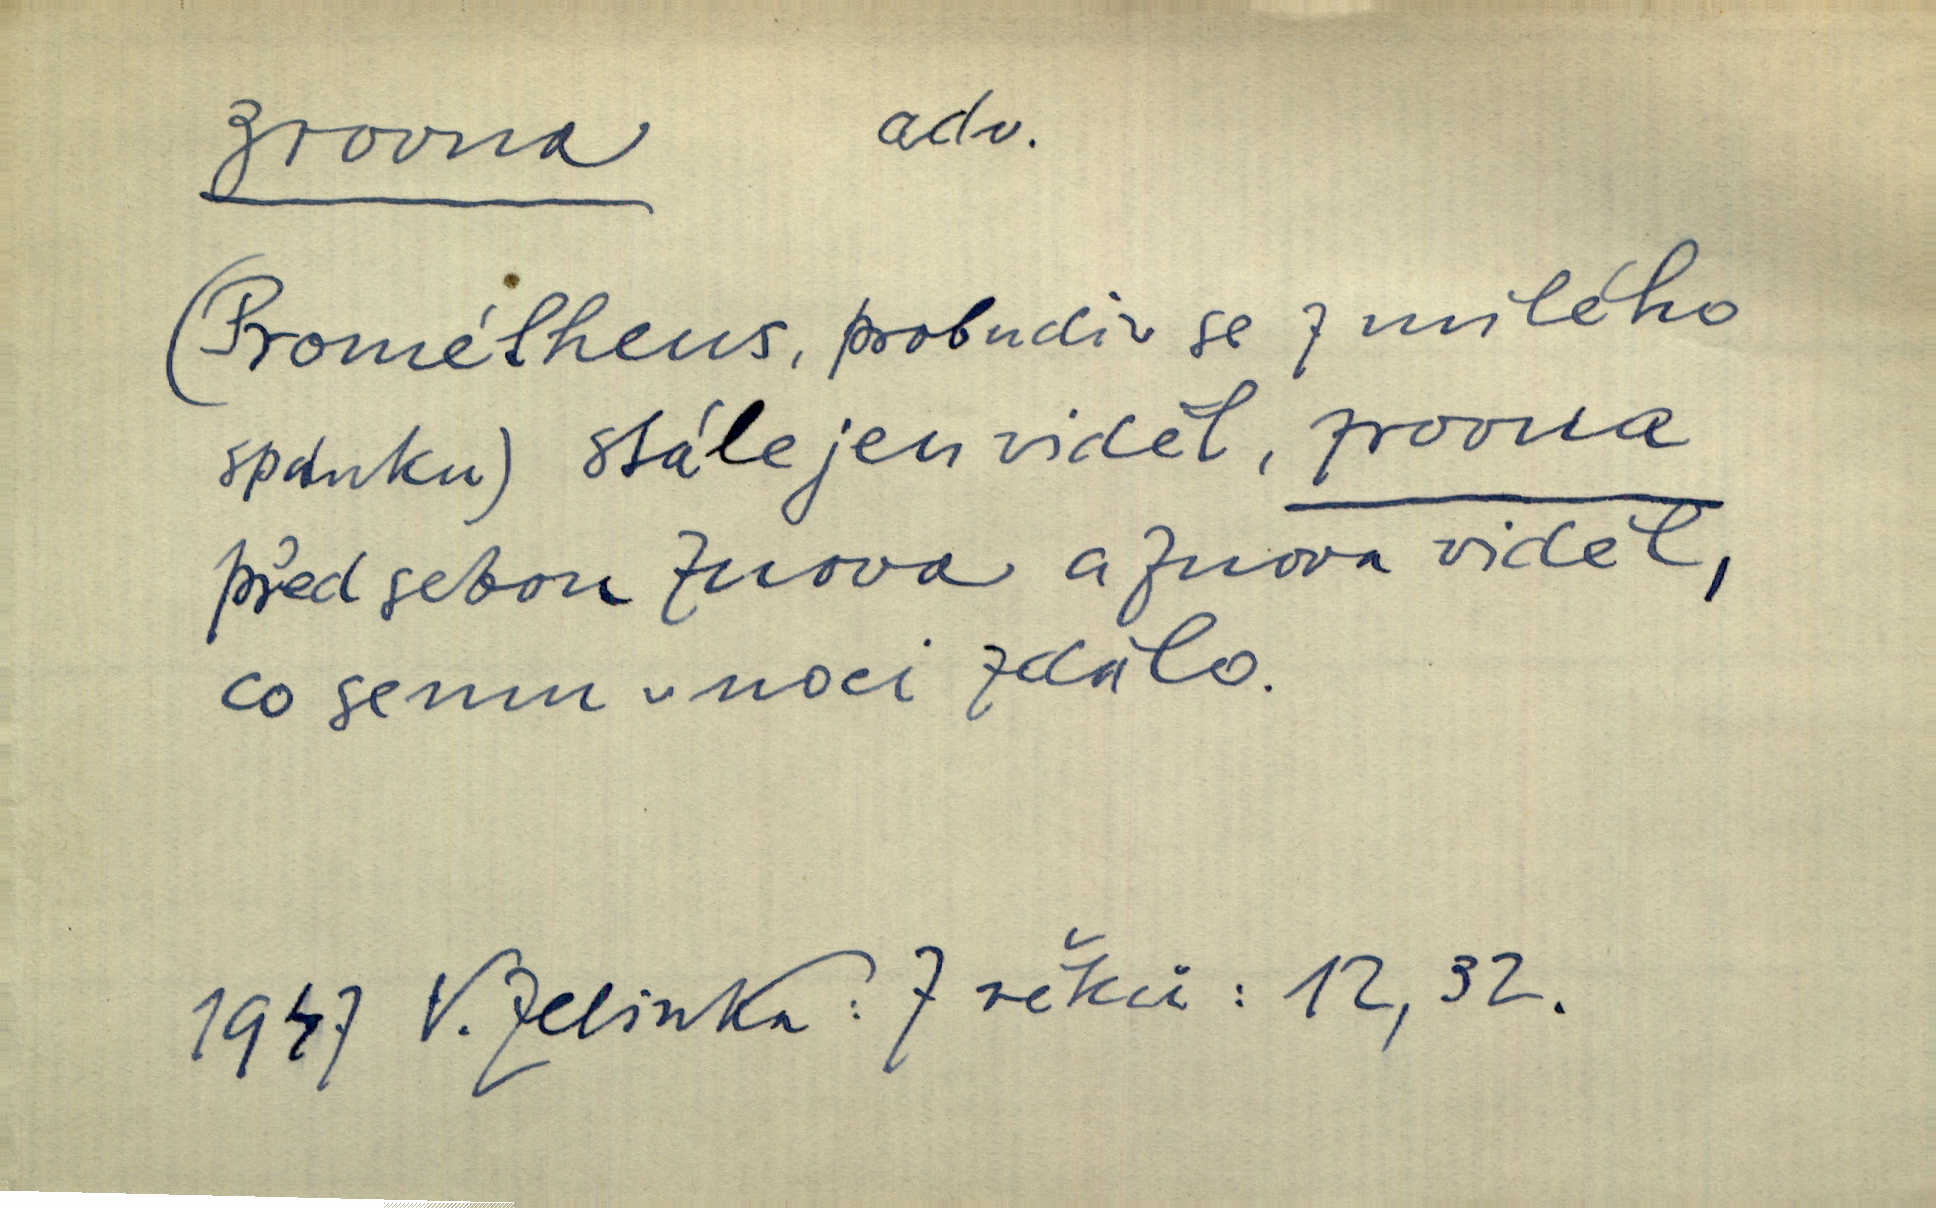 zrovna adv.
(Prométheus, probudiv se z milého
spánku) stále jen viděl, zrovna
před sebou znova a znova viděl,
co se mu v noci zdálo.
1947 V. Zelinka: Z věků: 12, 32.